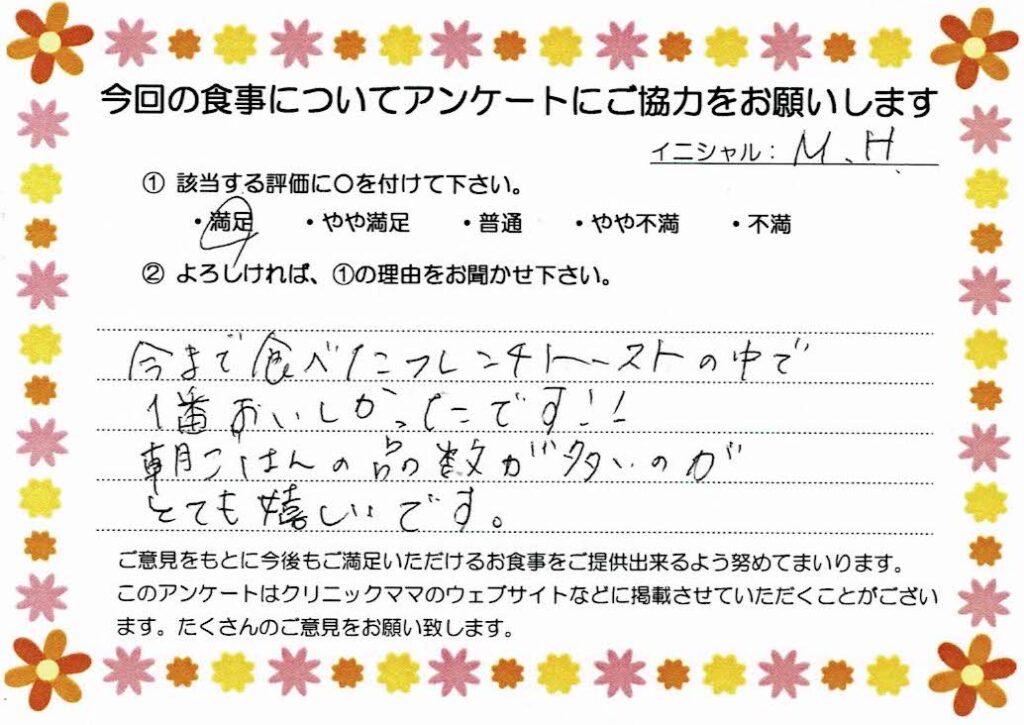 今回の食事についてアンケートにご協力をお願いします
イニシャル： M.H.
① 該当する評価に〇を付けて下さい。
・満足 ・やや満足 ・普通 ・やや不満 ・不満
② よろしければ、①の理由をお聞かせ下さい。
今まで食べたフレンチトーストの中で
1番おいしかったです!!
朝ごはんの品数が多いのが
とても嬉しいです。
ご意見をもとに今後もご満足いただけるお食事をご提供出来るよう努めてまいります。
このアンケートはクリニックママのウェブサイトなどに掲載させていただくことがござい
ます。たくさんのご意見をお願い致します。